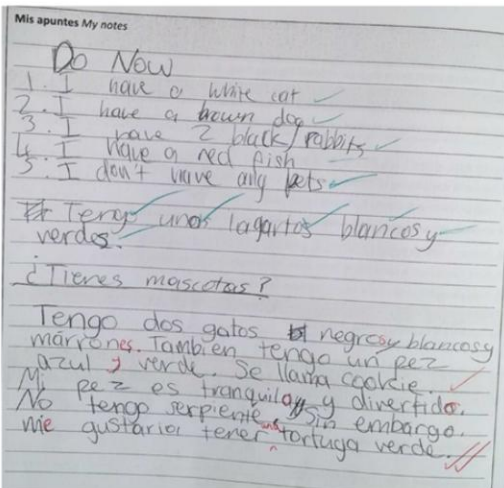 Mis apuntes My notes
Do Now
1. I have a white cat
2. I have a brown dog
3. I have 2 black rabbits
4. I have a red fish
5. I don't have any pets
Tengo unos lagartos blancos y
verdes.
¿Tienes mascotas?
Tengo dos gatos negros y blancos y
marrones. Tambien tengo un pez
azul y verde. Se llama cookie.
Mi pez es tranquilo y divertido.
No tengo serpiente, sin embargo.
me gustaria tener una tortuga verde.